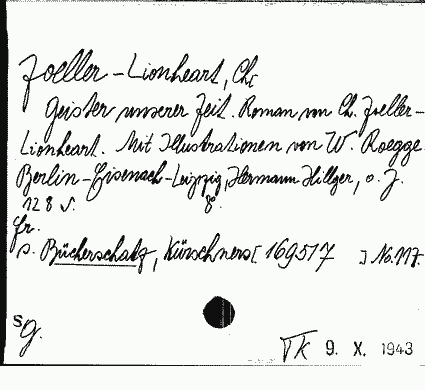 Zoeller-Lionheart, Ch.
Geister unserer Zeit. Roman von Ch. Zoeller-
Lionheart. Mit Illustrationen von W. Roegge.
Berlin-Eisenach-Leipzig, Hermann Hillger, o. J.
128 S. 8°.
fr.
s. Bücherschatz, Kürschners [169517 ] No. 117.
Sg.
VK 9. X. 1943